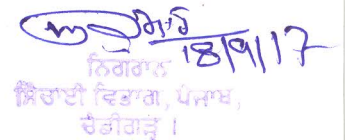 18/9/17
ਨਿਗਰਾਨ
ਸਿੰਚਾਈ ਵਿਭਾਗ, ਪੰਜਾਬ,
ਚੰਡੀਗੜ੍ਹ ।